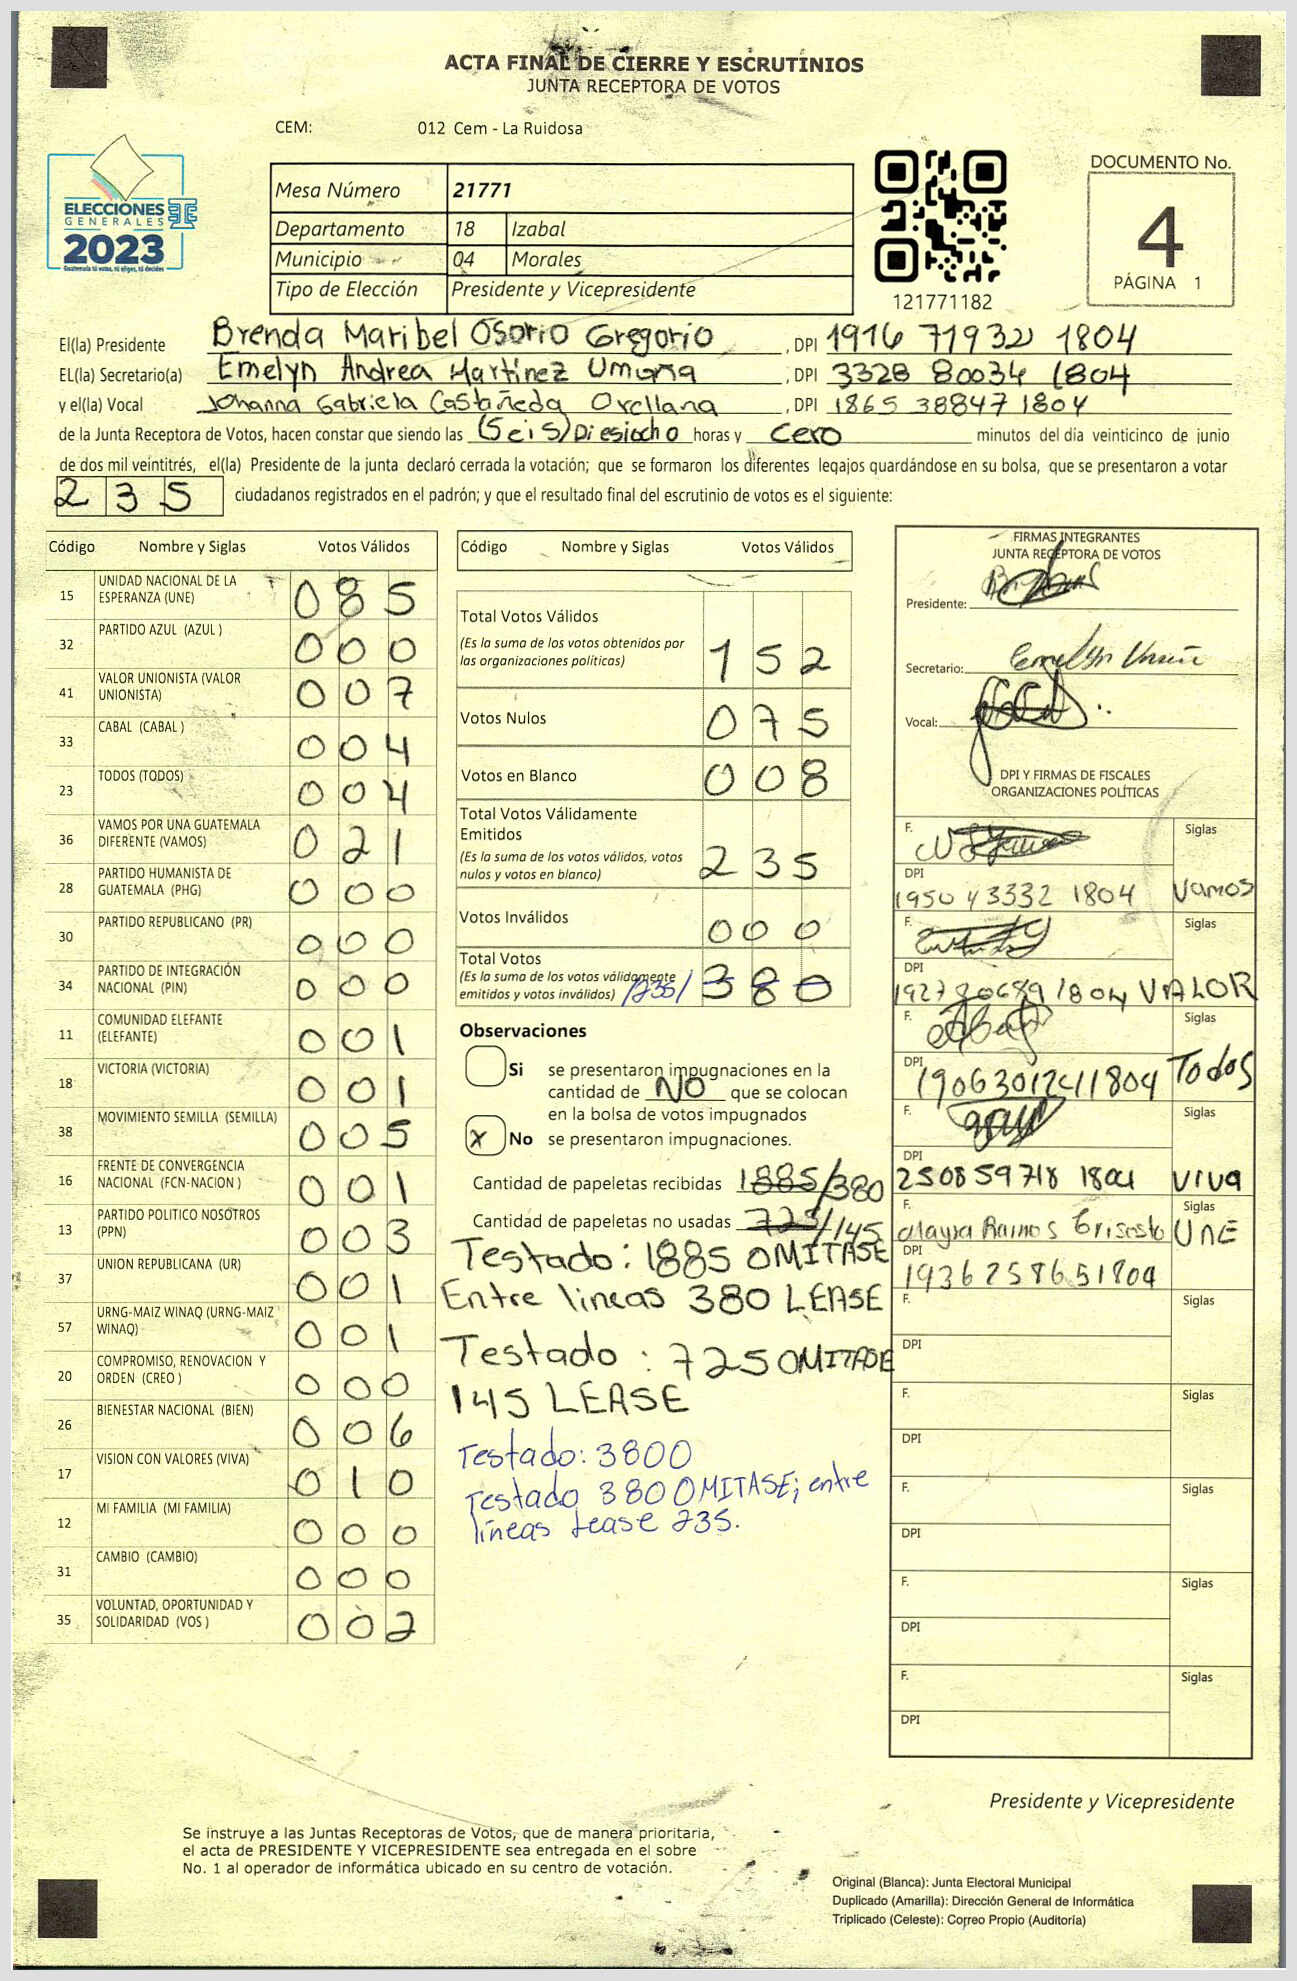 ACTA FINAL DE CIERRE Y ESCRUTINIOS
JUNTA RECEPTORA DE VOTOS
CEM: 012 Cem - La Ruidosa
ELECCIONES
GENERALES
2023
Guatemala tú votas, tú eliges, tú decides
Mesa Número 21771
Departamento 18 Izabal
Municipio 04 Morales
Tipo de Elección Presidente y Vicepresidente
121771182
DOCUMENTO No.
4
PÁGINA 1
El(la) Presidente Brenda Maribel Osorio Gregorio, DPI 1916 71932 1804
EL(la) Secretario(a) Emelyn Andrea Martinez Umaña, DPI 3328 80034 1804
y el(la) Vocal Johanna Gabriela Castañeda Orellana, DPI 1865 38847 1804
de la Junta Receptora de Votos, hacen constar que siendo las (Seis) Diesiocho horas y cero minutos del día veinticinco de junio
de dos mil veintitrés, el(la) Presidente de la junta declaró cerrada la votación; que se formaron los diferentes legajos guardándose en su bolsa, que se presentaron a votar
235 ciudadanos registrados en el padrón; y que el resultado final del escrutinio de votos es el siguiente:
Código Nombre y Siglas Votos Válidos
15 UNIDAD NACIONAL DE LA ESPERANZA (UNE) 085
32 PARTIDO AZUL (AZUL ) 000
41 VALOR UNIONISTA (VALOR UNIONISTA) 007
33 CABAL (CABAL ) 004
23 TODOS (TODOS) 004
36 VAMOS POR UNA GUATEMALA DIFERENTE (VAMOS) 021
28 PARTIDO HUMANISTA DE GUATEMALA (PHG) 000
30 PARTIDO REPUBLICANO (PR) 000
34 PARTIDO DE INTEGRACIÓN NACIONAL (PIN) 000
11 COMUNIDAD ELEFANTE (ELEFANTE) 001
18 VICTORIA (VICTORIA) 001
38 MOVIMIENTO SEMILLA (SEMILLA) 005
16 FRENTE DE CONVERGENCIA NACIONAL (FCN-NACION ) 001
13 PARTIDO POLITICO NOSOTROS (PPN) 003
37 UNION REPUBLICANA (UR) 001
57 URNG-MAIZ WINAQ (URNG-MAIZ WINAQ) 001
20 COMPROMISO, RENOVACION Y ORDEN (CREO ) 000
26 BIENESTAR NACIONAL (BIEN) 006
17 VISION CON VALORES (VIVA) 010
12 MI FAMILIA (MI FAMILIA) 000
31 CAMBIO (CAMBIO) 000
35 VOLUNTAD, OPORTUNIDAD Y SOLIDARIDAD (VOS ) 002
Código Nombre y Siglas Votos Válidos
Total Votos Válidos
(Es la suma de los votos obtenidos por
las organizaciones políticas) 152
Votos Nulos 075
Votos en Blanco 008
Total Votos Válidamente
Emitidos
(Es la suma de los votos válidos, votos
nulos y votos en blanco) 235
Votos Inválidos 000
Total Votos
(Es la suma de los votos válidamente
emitidos y votos inválidos) /235/ 380
Observaciones
Si se presentaron impugnaciones en la
cantidad de NO que se colocan
en la bolsa de votos impugnados
x No se presentaron impugnaciones.
Cantidad de papeletas recibidas 1885/380
Cantidad de papeletas no usadas 725/145
Testado: 1885 OMITASE
Entre lineas 380 LEASE
Testado: 725 OMITASE
145 LEASE
Testado: 3800
Testado 380 OMITASE; entre
líneas Lease 235.
FIRMAS INTEGRANTES
JUNTA RECEPTORA DE VOTOS
Presidente:
Secretario:
Vocal:
DPI Y FIRMAS DE FISCALES
ORGANIZACIONES POLÍTICAS
F. Siglas
DPI
1950 43332 1804 Vamos
F. Siglas
DPI
1927 80689 1804 VALOR
F. Siglas
DPI
1906301241804 Todos
F. Siglas
DPI
2508 59718 1804 VIVA
F. Mayra Ramos Siglas UNE
DPI
1936258651804
F. Siglas
DPI
F. Siglas
DPI
F. Siglas
DPI
F. Siglas
DPI
F. Siglas
DPI
Presidente y Vicepresidente
Se instruye a las Juntas Receptoras de Votos, que de manera prioritaria,
el acta de PRESIDENTE Y VICEPRESIDENTE sea entregada en el sobre
No. 1 al operador de informática ubicado en su centro de votación.
Original (Blanca): Junta Electoral Municipal
Duplicado (Amarilla): Dirección General de Informática
Triplicado (Celeste): Correo Propio (Auditoría)